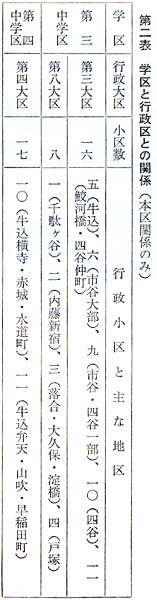 第二表 学区と行政区との関係（本区関係のみ）
学区 行政大区 小区数 行政小区と主な地区
第三中学区 第三大区 一六 五（牛込）、六（市谷大部）、九（市谷・四谷一部）、一〇（四谷）、一一（鮫河橋・四谷仲町）
第八大区 八 一（千駄ヶ谷）、二（内藤新宿）、三（落合・大久保・淀橋）、四（戸塚）
第四中学区 第四大区 一七 一〇（牛込横寺・赤城・水道町）、一一（牛込弁天・山吹・早稲田町）